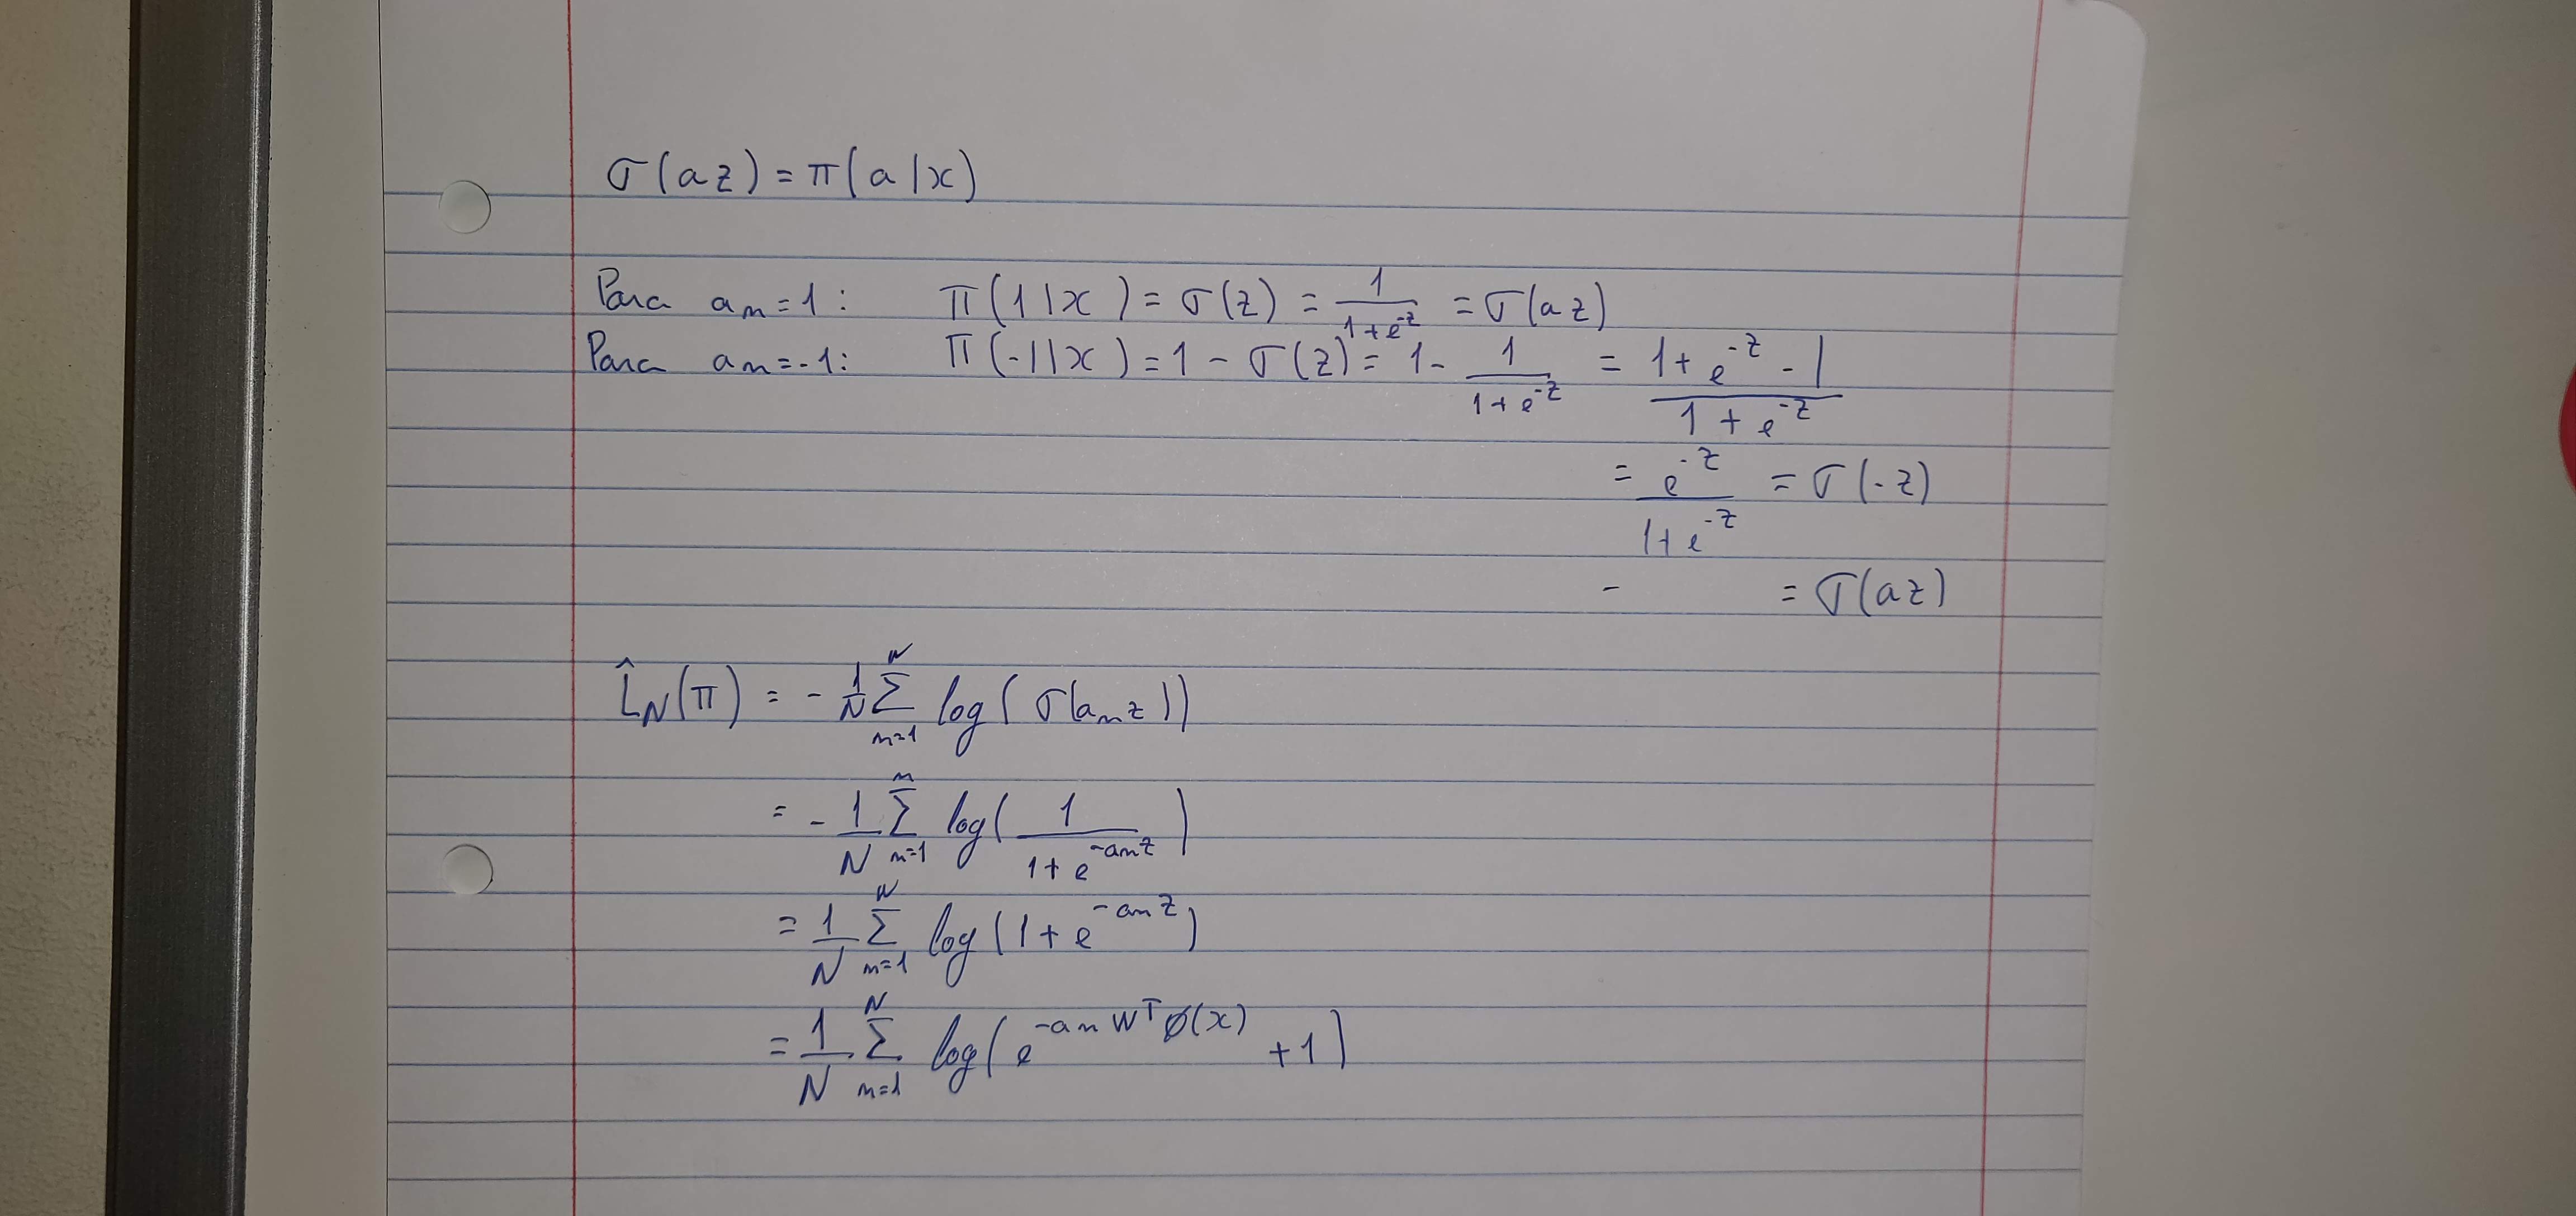 σ(az) = π(a|x)
Para aₙ = 1 : π(1|x) = σ(z) = 1/(1+e^(-z)) = σ(az)
Para aₙ = -1 : π(-1|x) = 1 - σ(z) = 1 - 1/(1+e^(-z)) = (1+e^(-z) - 1)/(1+e^(-z))
= e^(-z)/(1+e^(-z)) = σ(-z)
- = σ(az)
L̂_N(π) = - 1/N Σ_{n=1}^{N} log(σ(aₙz))
= - 1/N Σ_{n=1}^{n} log(1/(1+e^(-aₙz)))
= 1/N Σ_{n=1}^{N} log(1+e^(-aₙz))
= 1/N Σ_{n=1}^{N} log(e^(-aₙW^Tø(x)) + 1)